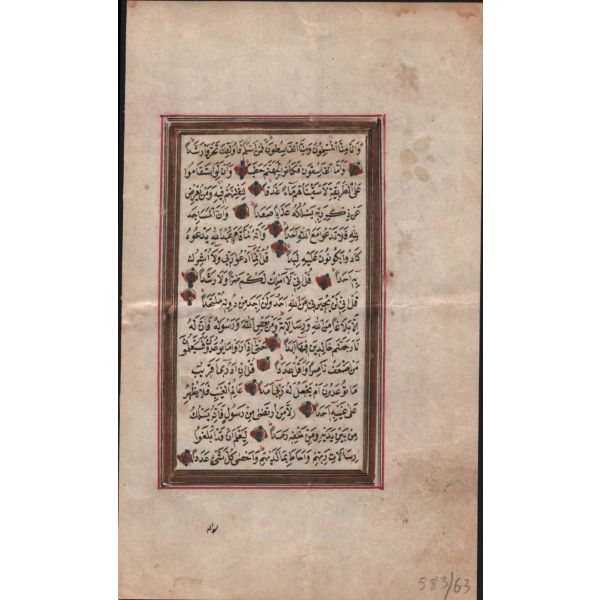 وَأَنَّا مِنَّا الْمُسْلِمُونَ وَمِنَّا الْقَاسِطُونَ فَمَنْ أَسْلَمَ فَأُولَٰئِكَ تَحَرَّوْا رَشَدًا
وَأَمَّا الْقَاسِطُونَ فَكَانُوا لِجَهَنَّمَ حَطَبًا وَأَنْ لَوِ اسْتَقَامُوا
عَلَى الطَّرِيقَةِ لَأَسْقَيْنَاهُمْ مَاءً غَدَقًا لِنَفْتِنَهُمْ فِيهِ وَمَنْ يُعْرِضْ
عَنْ ذِكْرِ رَبِّهِ يَسْلُكْهُ عَذَابًا صَعَدًا وَأَنَّ الْمَسَاجِدَ
لِلَّهِ فَلَا تَدْعُوا مَعَ اللَّهِ أَحَدًا وَأَنَّهُ لَمَّا قَامَ عَبْدُ اللَّهِ يَدْعُوهُ
كَادُوا يَكُونُونَ عَلَيْهِ لِبَدًا قُلْ إِنَّمَا أَدْعُو رَبِّي وَلَا أُشْرِكُ
بِهِ أَحَدًا قُلْ إِنِّي لَا أَمْلِكُ لَكُمْ ضَرًّا وَلَا رَشَدًا
قُلْ إِنِّي لَنْ يُجِيرَنِي مِنَ اللَّهِ أَحَدٌ وَلَنْ أَجِدَ مِنْ دُونِهِ مُلْتَحَدًا
إِلَّا بَلَاغًا مِنَ اللَّهِ وَرِسَالَاتِهِ وَمَنْ يَعْصِ اللَّهَ وَرَسُولَهُ فَإِنَّ لَهُ
نَارَ جَهَنَّمَ خَالِدِينَ فِيهَا أَبَدًا حَتَّىٰ إِذَا رَأَوْا مَا يُوعَدُونَ فَسَيَعْلَمُونَ
مَنْ أَضْعَفُ نَاصِرًا وَأَقَلُّ عَدَدًا قُلْ إِنْ أَدْرِي أَقَرِيبٌ
مَا تُوعَدُونَ أَمْ يَجْعَلُ لَهُ رَبِّي أَمَدًا عَالِمُ الْغَيْبِ فَلَا يُظْهِرُ
عَلَىٰ غَيْبِهِ أَحَدًا إِلَّا مَنِ ارْتَضَىٰ مِنْ رَسُولٍ فَإِنَّهُ يَسْلُكُ
مِنْ بَيْنِ يَدَيْهِ وَمِنْ خَلْفِهِ رَصَدًا لِيَعْلَمَ أَنْ قَدْ أَبْلَغُوا
رِسَالَاتِ رَبِّهِمْ وَأَحَاطَ بِمَا لَدَيْهِمْ وَأَحْصَىٰ كُلَّ شَيْءٍ عَدَدًا
583/63